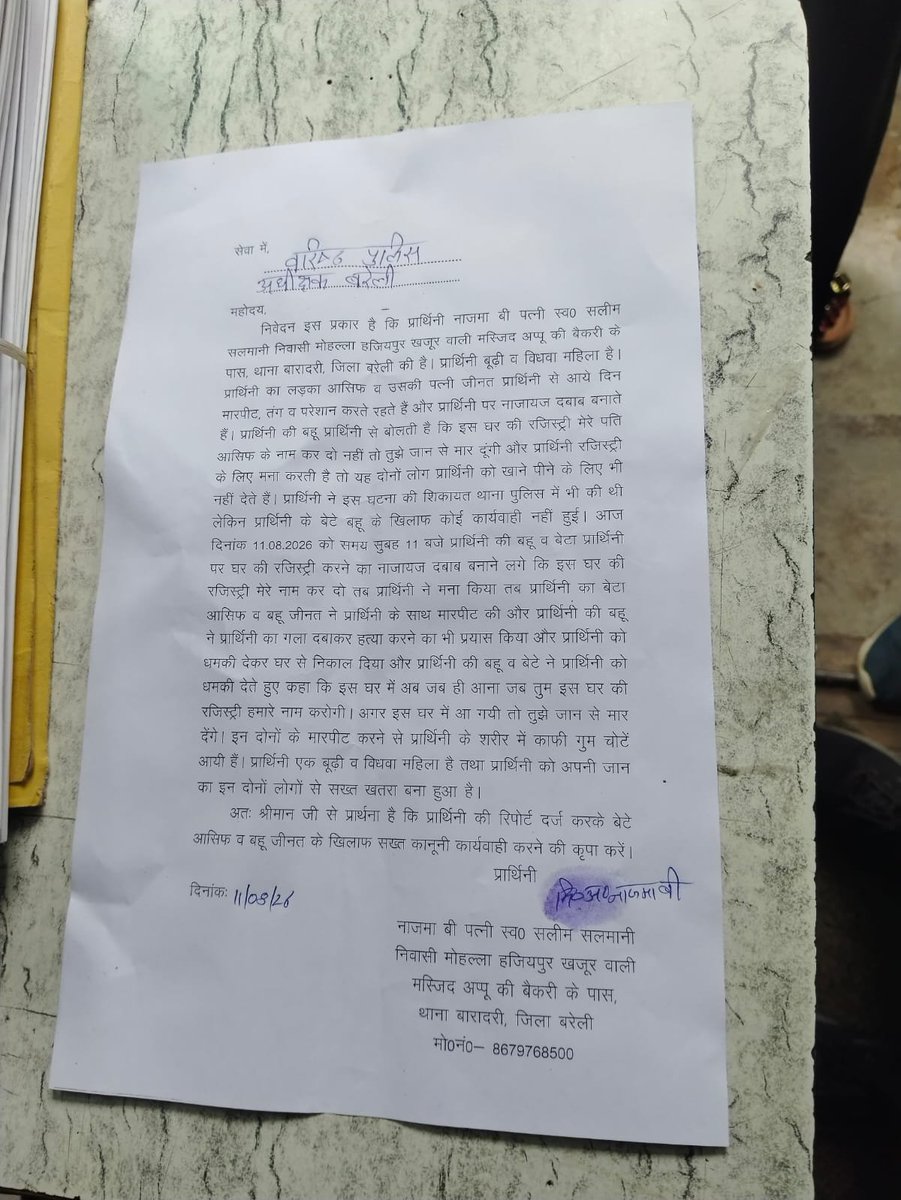 सेवा में,
वरिष्ठ पुलिस
अधीक्षक बरेली
महोदय,
निवेदन इस प्रकार है कि प्रार्थिनी नाजमा बी पत्नी स्व0 सलीम
सलमानी निवासी मोहल्ला हजियपुर खजूर वाली मस्जिद अप्पू की बैकरी के
पास, थाना बारादरी, जिला बरेली की है। प्रार्थिनी बूढ़ी व विधवा महिला है।
प्रार्थिनी का लड़का आसिफ व उसकी पत्नी जीनत प्रार्थिनी से आये दिन
मारपीट, तंग व परेशान करते रहते हैं और प्रार्थिनी पर नाजायज दबाब बनाते
हैं। प्रार्थिनी की बहू प्रार्थिनी से बोलती है कि इस घर की रजिस्ट्री मेरे पति
आसिफ के नाम कर दो नहीं तो तुझे जान से मार दूंगी और प्रार्थिनी रजिस्ट्री
के लिए मना करती है तो यह दोनों लोग प्रार्थिनी को खाने पीने के लिए भी
नहीं देते हैं। प्रार्थिनी ने इस घटना की शिकायत थाना पुलिस में भी की थी
लेकिन प्रार्थिनी के बेटे बहू के खिलाफ कोई कार्यवाही नहीं हुई। आज
दिनांक 11.08.2026 को समय सुबह 11 बजे प्रार्थिनी की बहू व बेटा प्रार्थिनी
पर घर की रजिस्ट्री करने का नाजायज दबाब बनाने लगे कि इस घर की
रजिस्ट्री मेरे नाम कर दो तब प्रार्थिनी ने मना किया तब प्रार्थिनी का बेटा
आसिफ व बहू जीनत ने प्रार्थिनी के साथ मारपीट की और प्रार्थिनी की बहू
ने प्रार्थिनी का गला दबाकर हत्या करने का भी प्रयास किया और प्रार्थिनी को
धमकी देकर घर से निकाल दिया और प्रार्थिनी की बहू व बेटे ने प्रार्थिनी को
धमकी देते हुए कहा कि इस घर में अब जब ही आना जब तुम इस घर की
रजिस्ट्री हमारे नाम करोगी। अगर इस घर में आ गयी तो तुझे जान से मार
देंगे। इन दोनों के मारपीट करने से प्रार्थिनी के शरीर में काफी गुम चोटें
आयी हैं। प्रार्थिनी एक बूढ़ी व विधवा महिला है तथा प्रार्थिनी को अपनी जान
का इन दोनों लोगों से सख्त खतरा बना हुआ है।
अतः श्रीमान जी से प्रार्थना है कि प्रार्थिनी की रिपोर्ट दर्ज करके बेटे
आसिफ व बहू जीनत के खिलाफ सख्त कानूनी कार्यवाही करने की कृपा करें।
प्रार्थिनी
नाजमा बी
दिनांकः 11/08/26
नाजमा बी पत्नी स्व0 सलीम सलमानी
निवासी मोहल्ला हजियपुर खजूर वाली
मस्जिद अप्पू की बैकरी के पास,
थाना बारादरी, जिला बरेली
मो0नं0– 8679768500